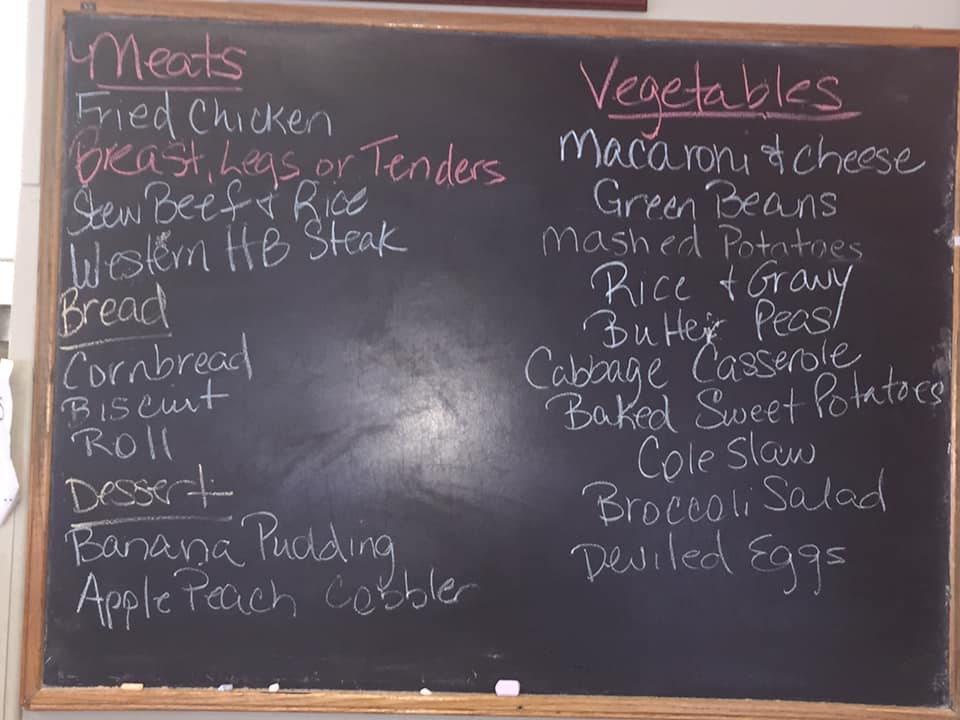 Meats
Fried Chicken
Breast, Legs or Tenders
Stew Beef & Rice
Western HB Steak
Bread
Cornbread
Biscuit
Roll
Dessert
Banana Pudding
Apple Peach Cobbler
Vegetables
Macaroni & cheese
Green Beans
Mashed Potatoes
Rice & Gravy
Butter Peas
Cabbage Casserole
Baked Sweet Potatoes
Cole Slaw
Broccoli Salad
Deviled Eggs